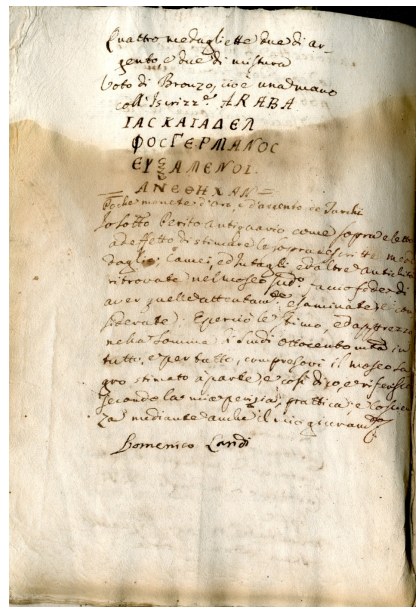 Quattro medagliette due di ar-
gento, e due di mistura
Voto di Bronzo, cioè una mano
coll'Iscrizz.e ARABA
ΙΑC ΚΑΙ ΑΔΕΛ
ΦΟC ΓΕΡΜΑΝΟC
ΕΥΞΑΜΕΝΟΙ.
ΑΝΕΘΗΚΑΝ =
Poche monete d'oro, e d'argento de Turchi
Io sotto Perito Antiquario, come sopra eletto
ad effetto di stimare le sopranoscritte me-
daglie, Camei, ed Intagli, ed altre Antichità
ritrovate nel museo sud.o, a mo fede di
aver quelle attentam.te esaminate, e con
siderate. E perciò le stimo, ed apprezzo
nella somma di scudi ottocento in
tutto, e per tutto, compresovi il museo
stimato a parte, e così dico, e riferisco
secondo la mia perizia, prattica, e
za mediante anche il mio giuram.to
Domenico Landi